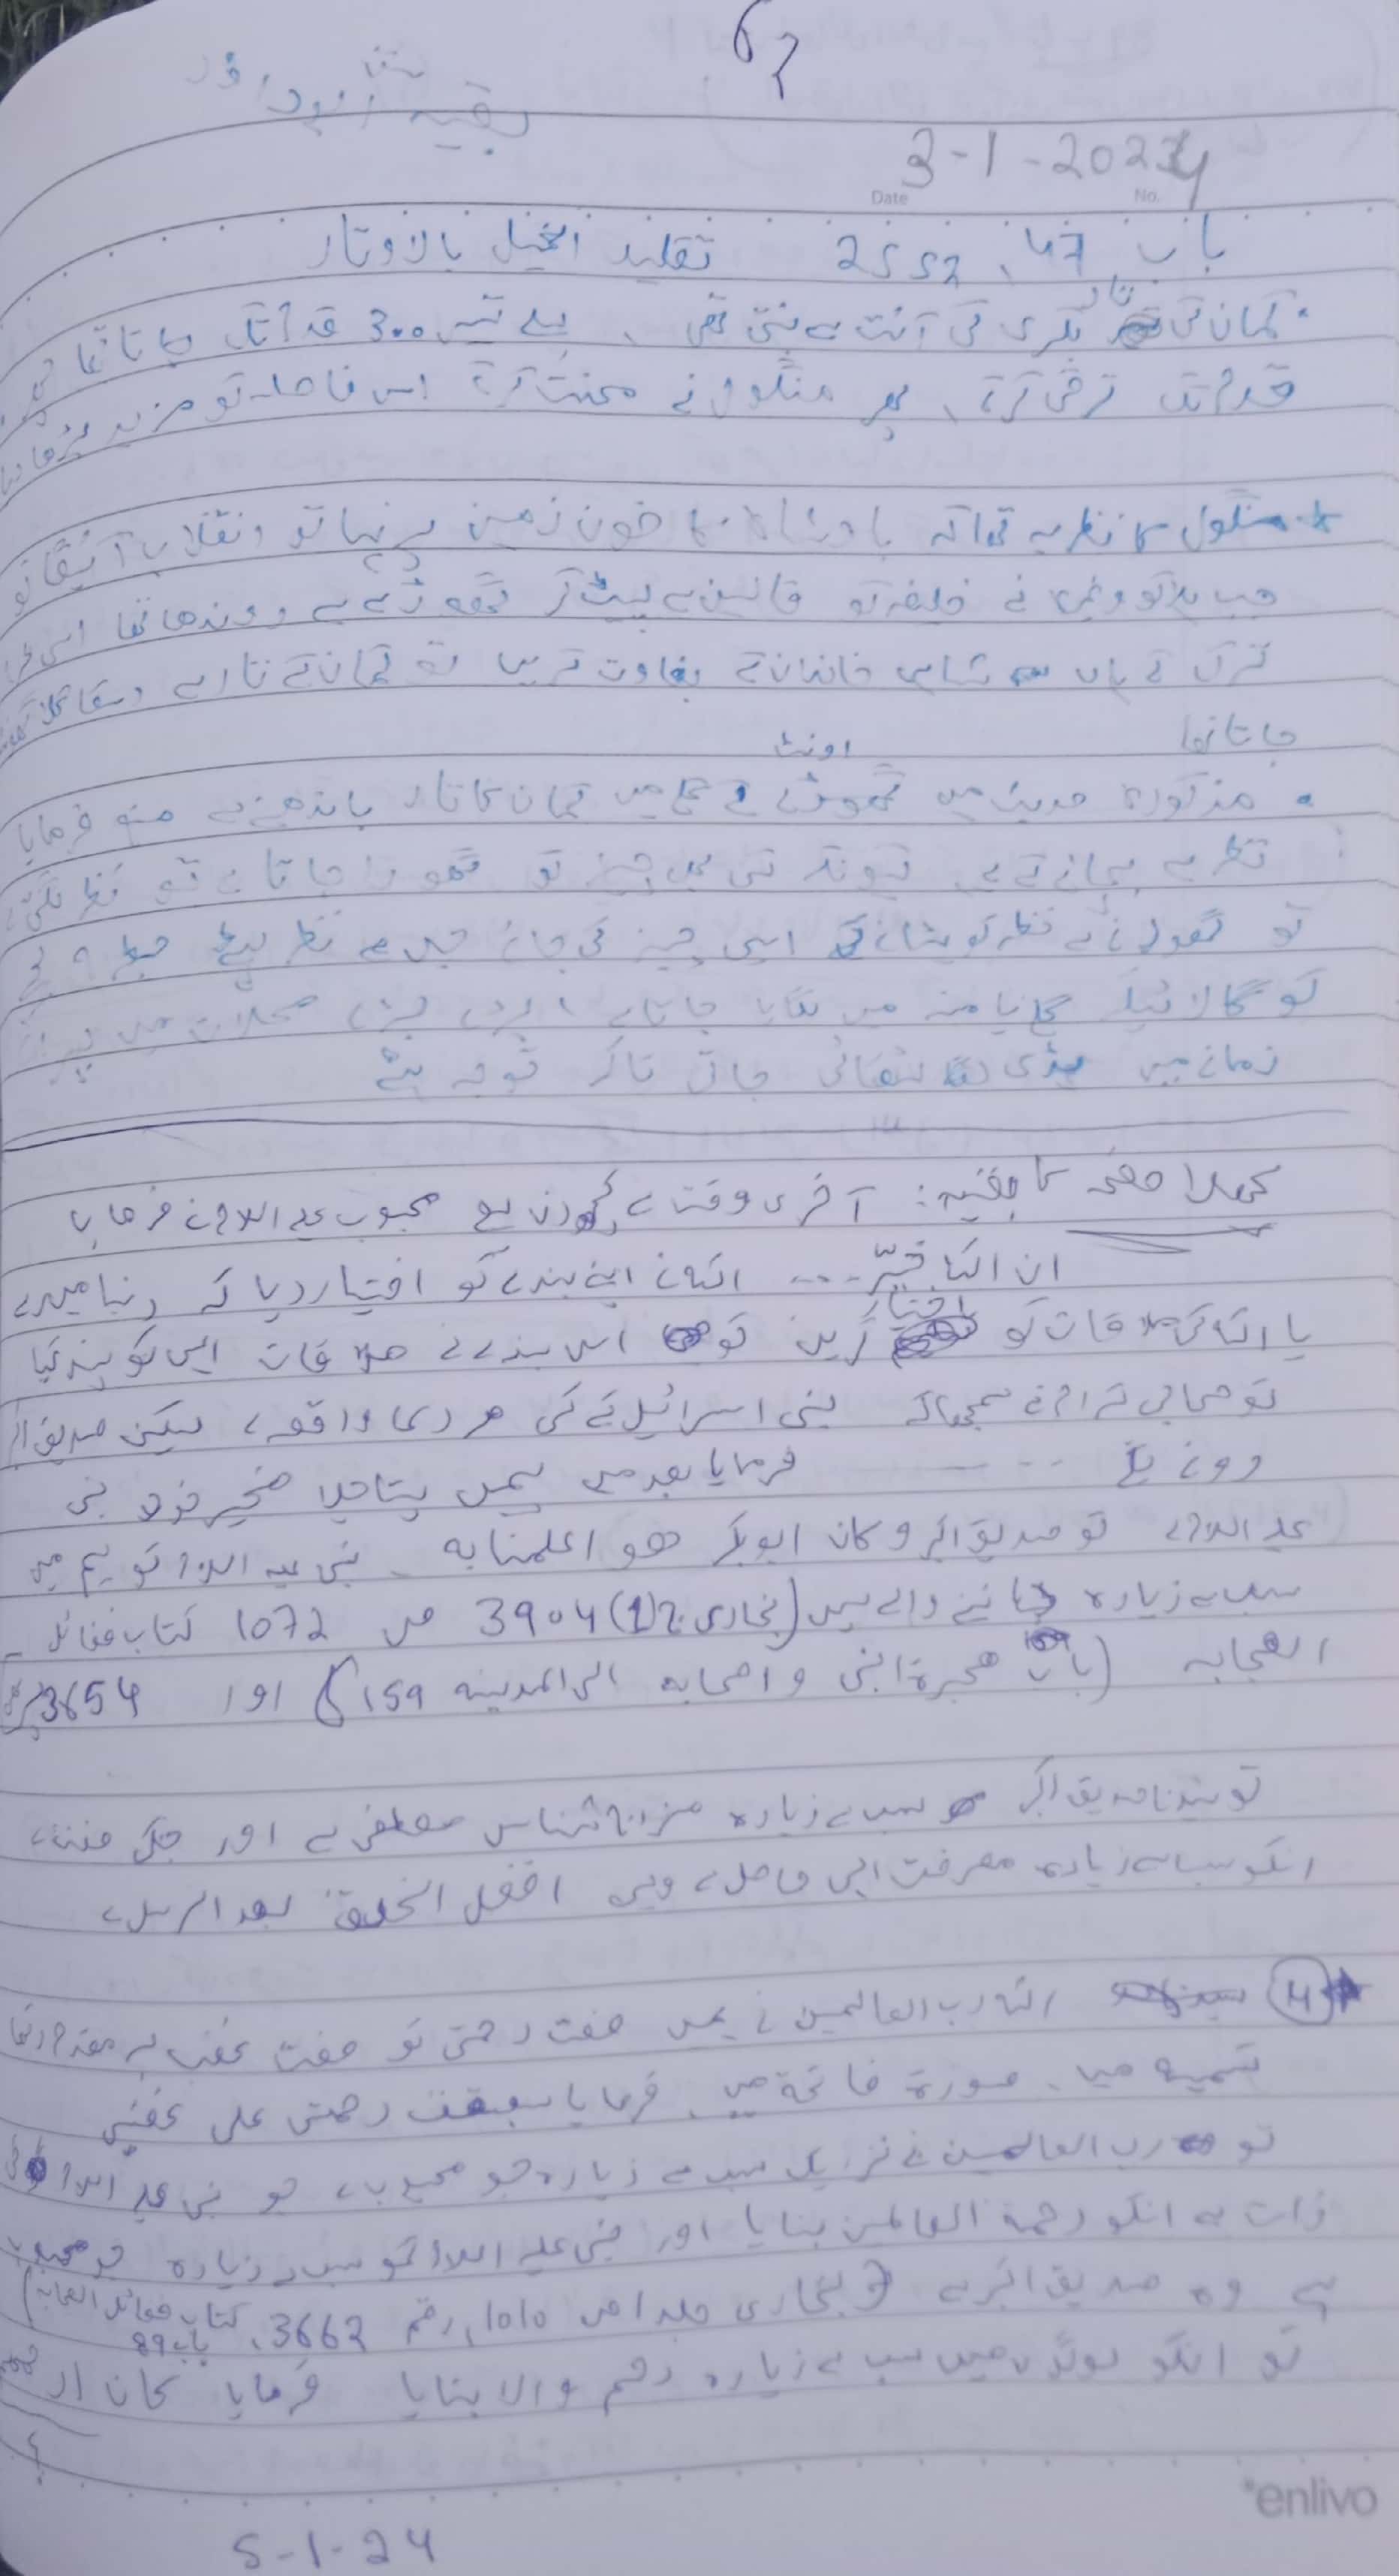 بقیہ ابوداؤد
3-1-2024
Date No.
باب 47، 2552 تقلید الخیل بالاوتار
کمان کی تار بکری کی آنت سے بنتی تھی۔ پہلے تیر 300 قدم تک جاتا تھا
قدم تک ترقی کرتے، پھر منگول نے محنت کرکے اس فاصلہ کو مزید بڑھا دیا
منگول کا نظریہ تھا کہ بادشاہ کا خون زمین پر بہا تو انقلاب آئیگا تو
جب ہلاکو وغیرہ نے خلیفہ کو قالین میں لپیٹ کر گھوڑے سے روندھا تھا اسی
ترک کے ہاں شاہی خاندان کے بغاوت کریں تو کمان کے تار سے
جاتا تھا
اونٹ
مذکورہ حدیث میں گھوڑے کے گلے میں کمان کا تار باندھنے سے منع فرمایا
نظر سے بچانے کے لیے کیونکہ کسی بھی چیز کو گھورا جاتا ہے تو نظر لگتی ہے
تو نظر کو ہٹانے ایسی چیز کی جائے جس سے نظر ہٹے
کو کالا ٹیکہ گلے یا منہ میں لگایا جاتا ہے، بڑے بڑے محلات میں
زمانے میں ہڈی لٹکائی جاتی تاکہ توجہ ہٹے
پچھلا صفحہ کا بقیہ: آخری وقت سے کچھ دن پہلے محبوب علیہ السلام نے فرمایا
ان اللہ خیّر ... اللہ نے اپنے بندے کو اختیار دیا کہ دنیا میں رہے
یا اللہ کی ملاقات کو اختیار کریں تو اس بندے نے ملاقات الہی کو پسند کیا
تو صحابی کرام نے سمجھا کہ بنی اسرائیل کے کسی مرد کا واقعہ ہے لیکن صدیق اکبر
رونے لگے ... فرمایا بعد میں ہمیں پتا چلا مخیر خود نبی
علیہ السلام ہے تو صدیق اکبر وکان ابوبکر ھو اعلمنا بہ۔ نبی علیہ السلام کو ہم میں
سب سے زیادہ جاننے والے ہیں (بخاری ج1) 3904 ص 1072 کتاب فضائل
الصحابہ (باب ھجرۃ النبی و اصحابہ الی المدینہ 159) اور 3654
تو سیدنا صدیق اکبر سب سے زیادہ مزاج شناس مصطفی ہے اور
انکو سب سے زیادہ معرفت الہی حاصل ہے وہی افضل الخلق بعد الرسل ہے
④ اللہ رب العالمین نے ہمیں صفت رحمتی کو صفت غضب پر مقدم رکھا
تسمیہ میں۔ سورۃ فاتحہ میں۔ فرمایا سبقت رحمتی علی غضبی
تو رب العالمین کے نزدیک سب سے زیادہ جو محبوب ہے جو نبی علیہ السلام کی
ذات ہے انکو رحمۃ العالمین بنایا اور نبی علیہ السلام کو سب سے زیادہ جو محبوب
ہے وہ صدیق اکبر ہے (بخاری جلد 1 ص 1010، رقم 3662، کتاب فضائل الصحابہ)
باب 89
تو انکو لوگوں میں سب سے زیادہ رحم والا بنایا فرمایا
enlivo
5-1-24